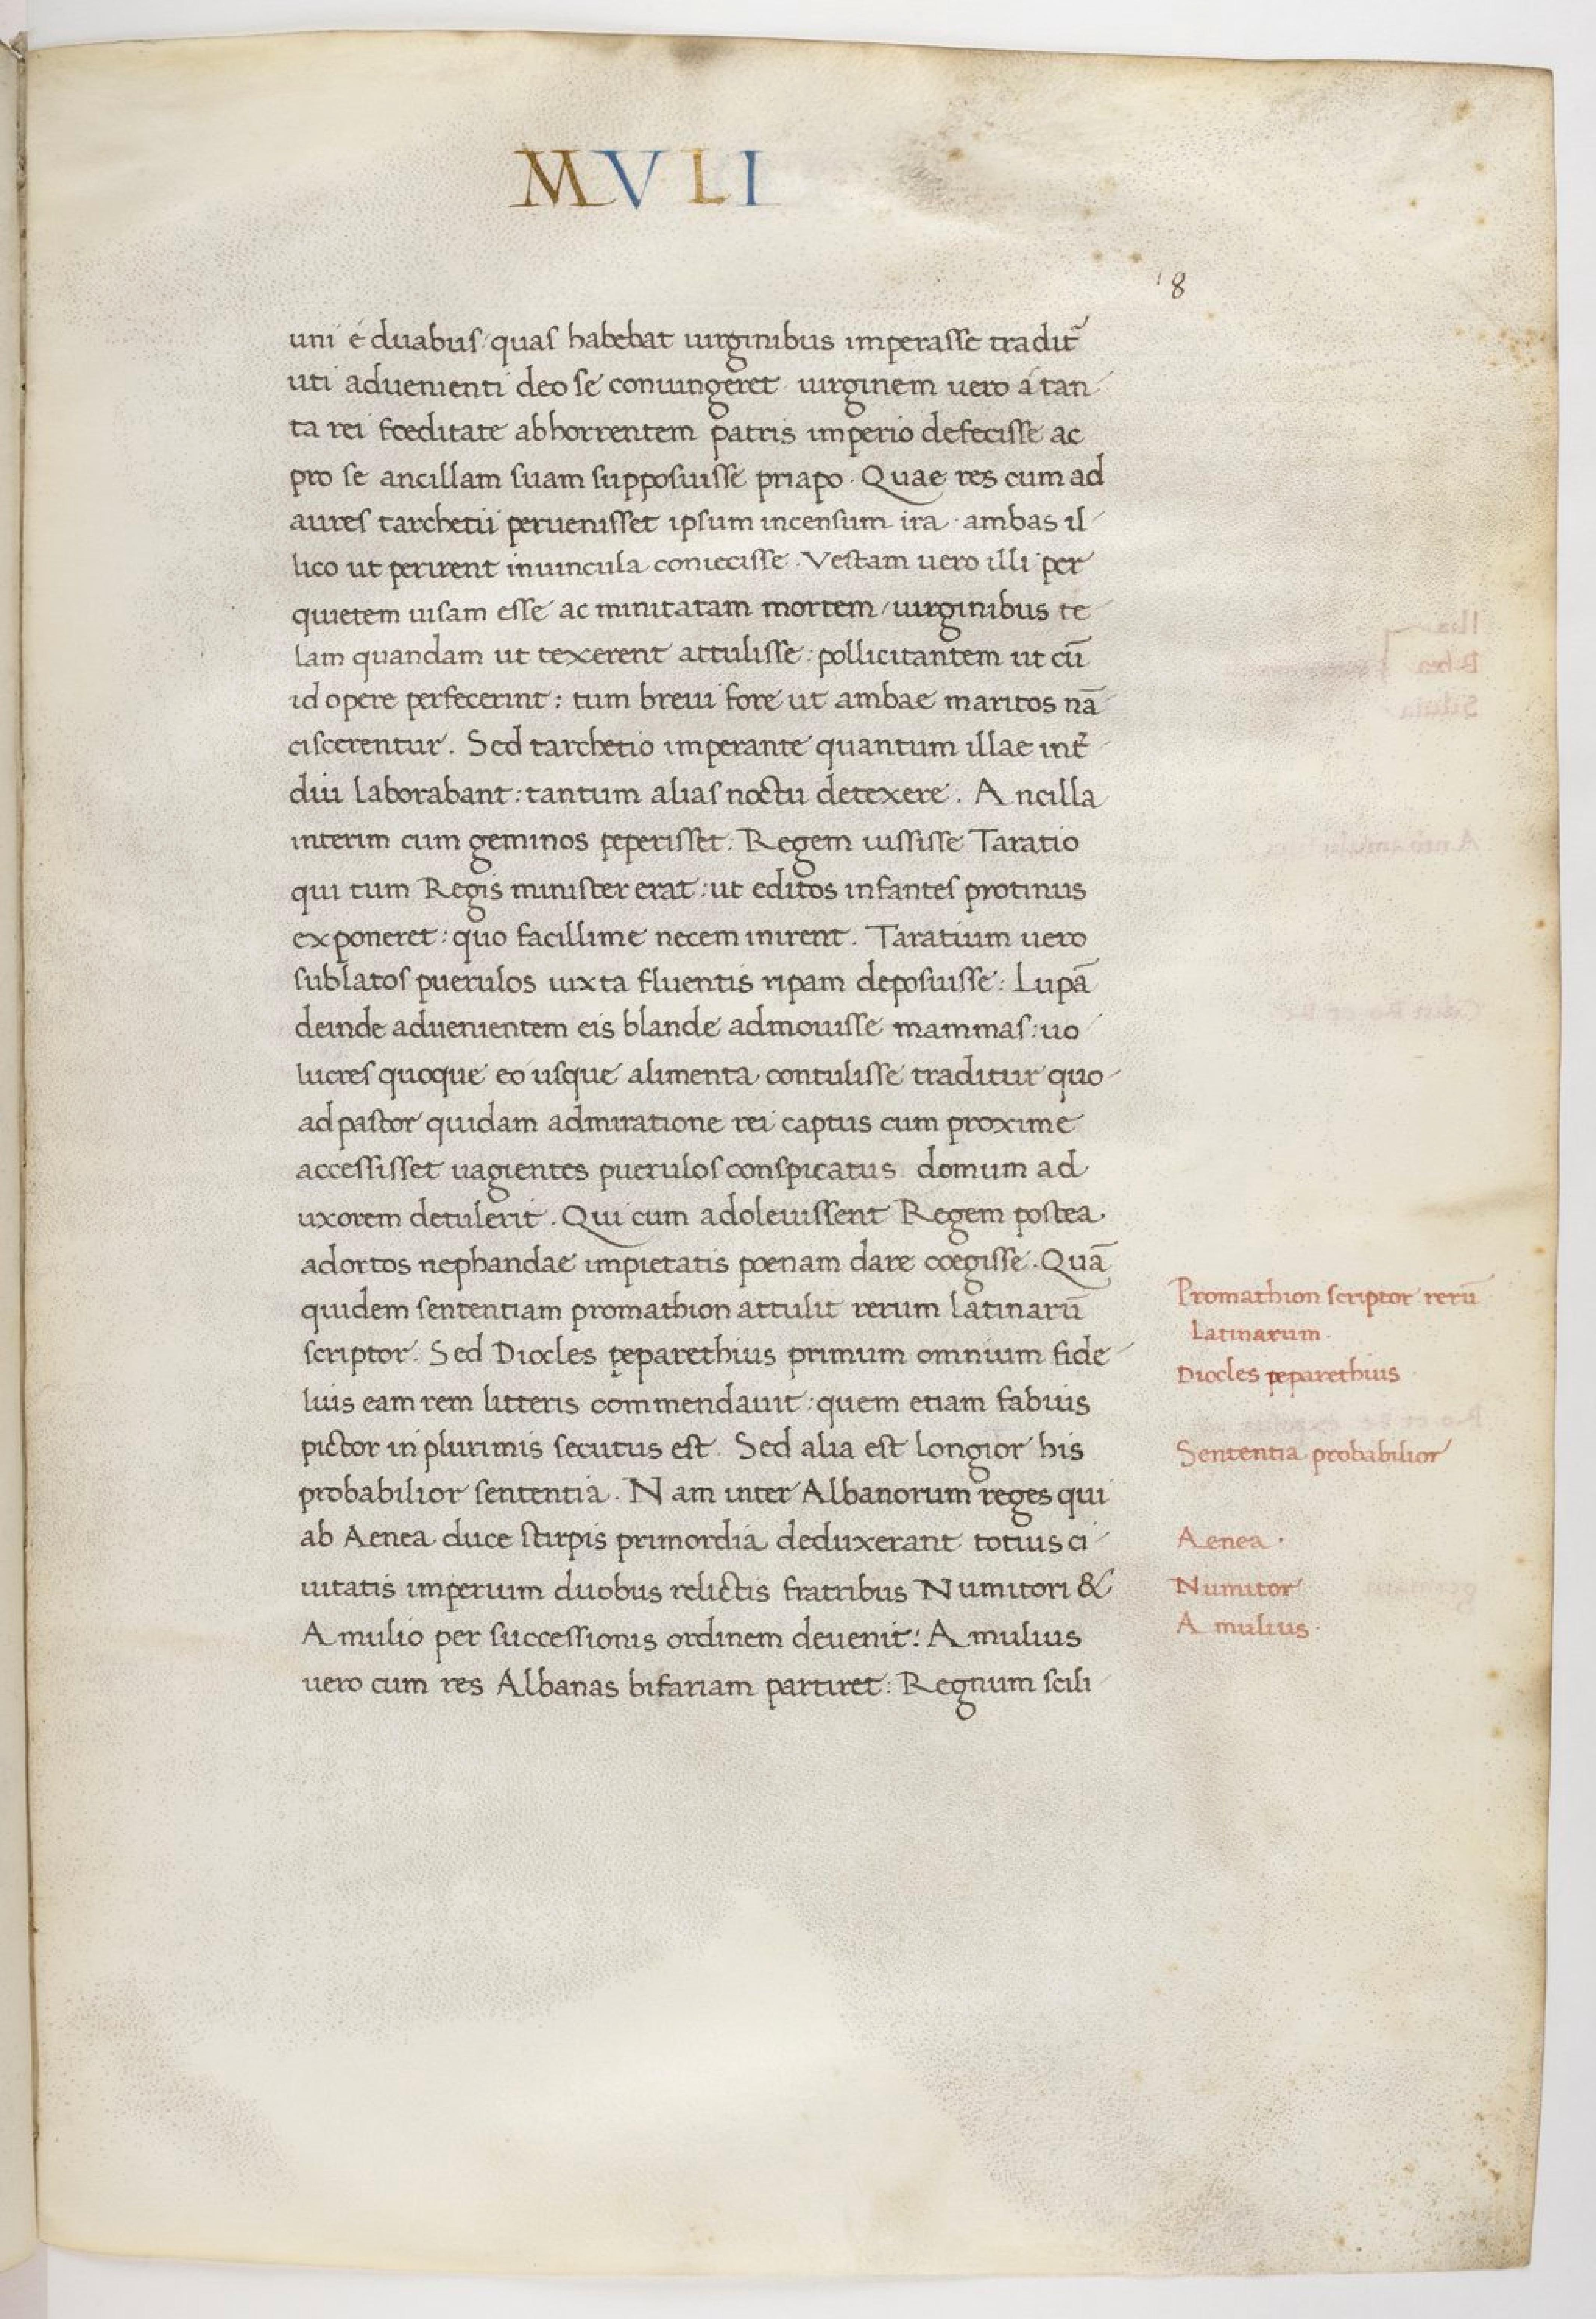 MVLI
18
uni é duabus quas habebat uirginibus imperasse tradit᷑
uti aduenienti deo se coniungeret uirginem uero á tan
ta rei foeditate abhorrentem patris imperio defecisse ac
pro se ancillam suam supposuisse priapo. Quae res cum ad
aures tarchetii peruenisset ipsum incensum ira. ambas il
lico ut perirent in uincula coniecisse. Vestam uero illi per
quietem uisam esse ac minitatam mortem/uirginibus te
lam quandam ut texerent attulisse: pollicitantem ut cū
id opere perfecerint: tum breui fore ut ambae maritos nā
ciscerentur. Sed tarchetio imperante quantum illae int᷑
diu laborabant: tantum alias noctu detexere. Ancilla
interim cum geminos peperisset: Regem iussisse Taratio
qui tum Regis minister erat: ut editos infantes protinus
exponeret: quo facillime necem inirent. Taratium uero
sublatos puerulos iuxta fluentis ripam deposuisse: Lupā
deinde aduenientem eis blande admouisse mammas: uo
lucres quoque eo usque alimenta contulisse traditur quo
ad pastor quidam admiratione rei captus cum proxime
accessisset uagientes puerulos conspicatus domum ad
uxorem detulerit. Qui cum adoleuissent Regem postea
adortos nephandae impietatis poenam dare coegisse. Quā
quidem sententiam promathion attulit rerum latinarū
scriptor. Sed Diocles peparethius primum omnium fide
lius eam rem litteris commendauit: quem etiam fabius
pictor in plurimis secutus est. Sed alia est longior his
probabilior sententia. Nam inter Albanorum reges qui
ab Aenea duce stirpis primordia deduxerant totius ci
uitatis imperium duobus relictis fratribus Numitori &
Amulio per successionis ordinem deuenit: Amulius
uero cum res Albanas bifariam partiret: Regnum scili
Promathion scriptor rerū
Latinarum.
Diocles peparethius
Sententia probabilior
Aenea.
Numitor
Amulius.